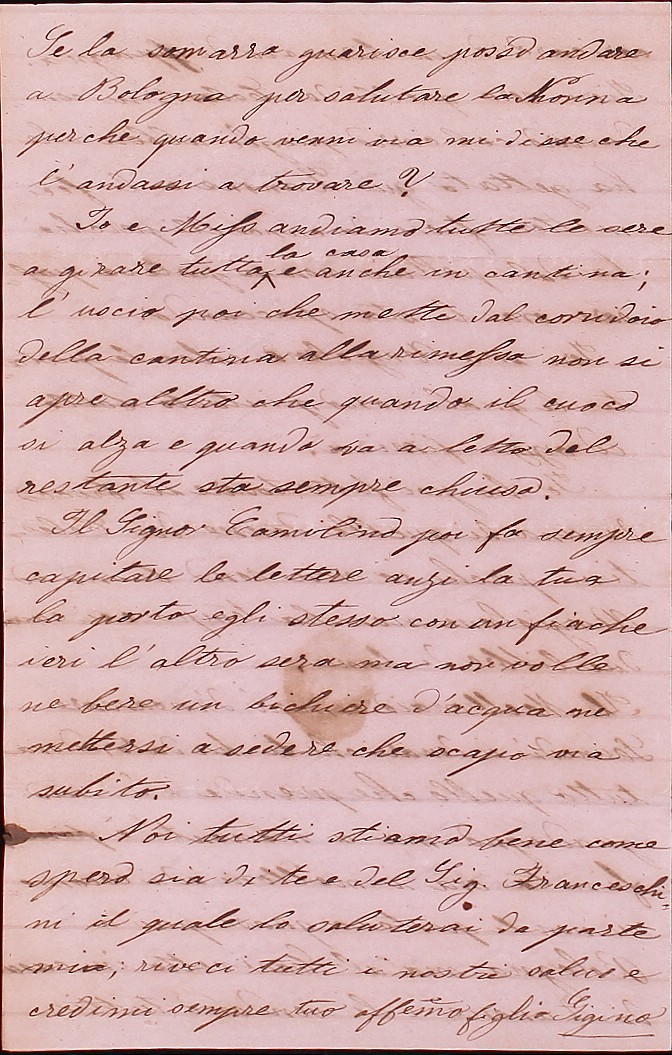 Se la somarra guarisce posso andare
a Bologna per salutare la Nonna
perche quando venni via mi disse che
l'andassi a trovare?
Io e Miss andiamo tutte le sere
a girare tutta la casa e anche in cantina;
l'uscio poi che mette dal corridoio
della cantina alla rimessa non si
apre alltro che quando il cuoco
si alza e quando va a letto del
restante sta sempre chiuso.
Il Signor Camilino poi fa sempre
capitare le lettere anzi la tua
la porto egli stesso con un fiache
ieri l'altro sera ma non volle
ne bere un bichiere d'acqua ne
mettersi a sedere che scapo via
subito.
Noi tutti stiamo bene come
spero sia di te e del Sig. Franceschi-
ni il quale lo saluterai da parte
mia; riveci tutti i nostri saluti e
credimi sempre tuo affemo figlio Gigino